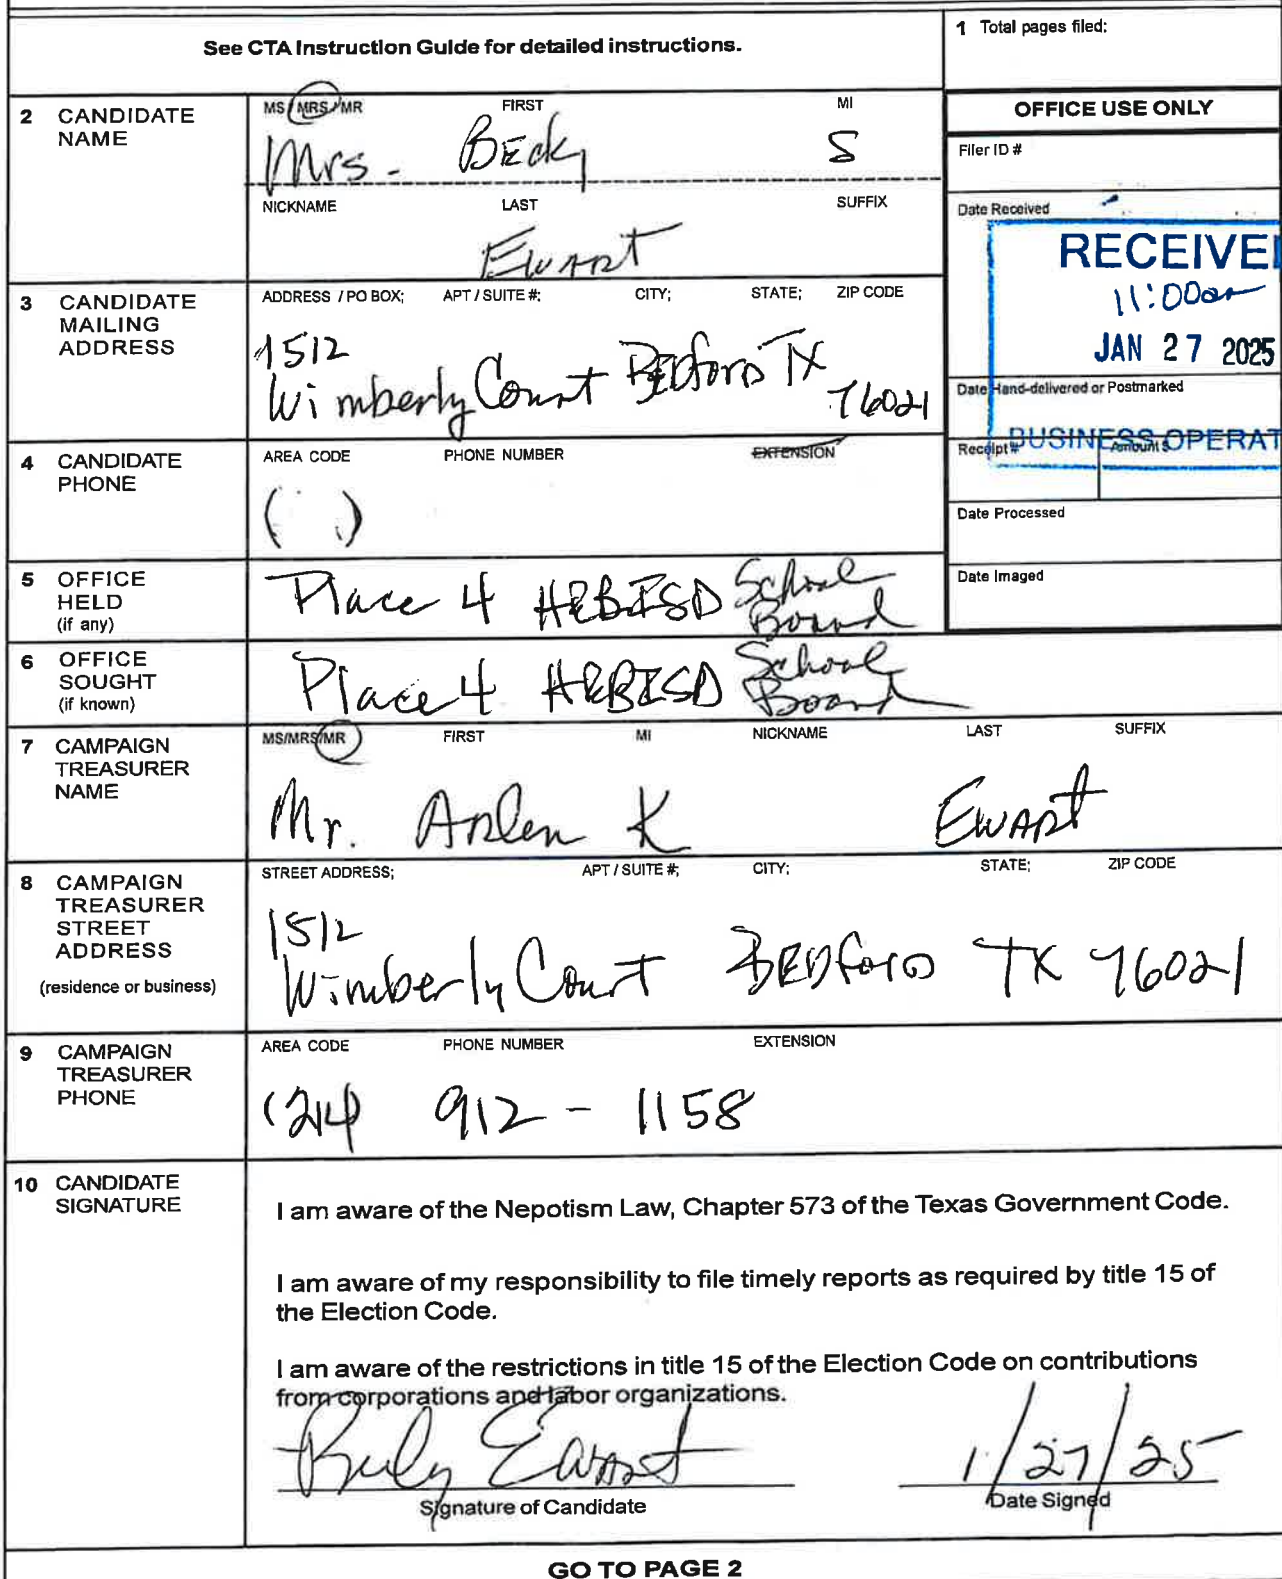 See CTA Instruction Guide for detailed instructions.
1 Total pages filed:
2 CANDIDATE NAME
MS / MRS / MR FIRST MI
Mrs. Becky S
NICKNAME LAST SUFFIX
Ewart
OFFICE USE ONLY
Filer ID #
Date Received
RECEIVE
11:00am
JAN 27 2025
BUSINESS OPERAT
Date Hand-delivered or Postmarked
Receipt # Amount $
Date Processed
Date Imaged
3 CANDIDATE MAILING ADDRESS
ADDRESS / PO BOX; APT / SUITE #; CITY; STATE; ZIP CODE
1512
Wimberly Court Bedford TX 76021
4 CANDIDATE PHONE
AREA CODE PHONE NUMBER EXTENSION
( )
5 OFFICE HELD (if any)
Place 4 HEBISD School Board
6 OFFICE SOUGHT (if known)
Place 4 HEBISD School Board
7 CAMPAIGN TREASURER NAME
MS/MRS/MR FIRST MI NICKNAME LAST SUFFIX
Mr. Arlen K Ewart
8 CAMPAIGN TREASURER STREET ADDRESS
(residence or business)
STREET ADDRESS; APT / SUITE #; CITY; STATE; ZIP CODE
1512
Wimberly Court Bedford TX 76021
9 CAMPAIGN TREASURER PHONE
AREA CODE PHONE NUMBER EXTENSION
(214) 912-1158
10 CANDIDATE SIGNATURE
I am aware of the Nepotism Law, Chapter 573 of the Texas Government Code.
I am aware of my responsibility to file timely reports as required by title 15 of
the Election Code.
I am aware of the restrictions in title 15 of the Election Code on contributions
from corporations and labor organizations.
Becky Ewart 1/27/25
Signature of Candidate Date Signed
GO TO PAGE 2